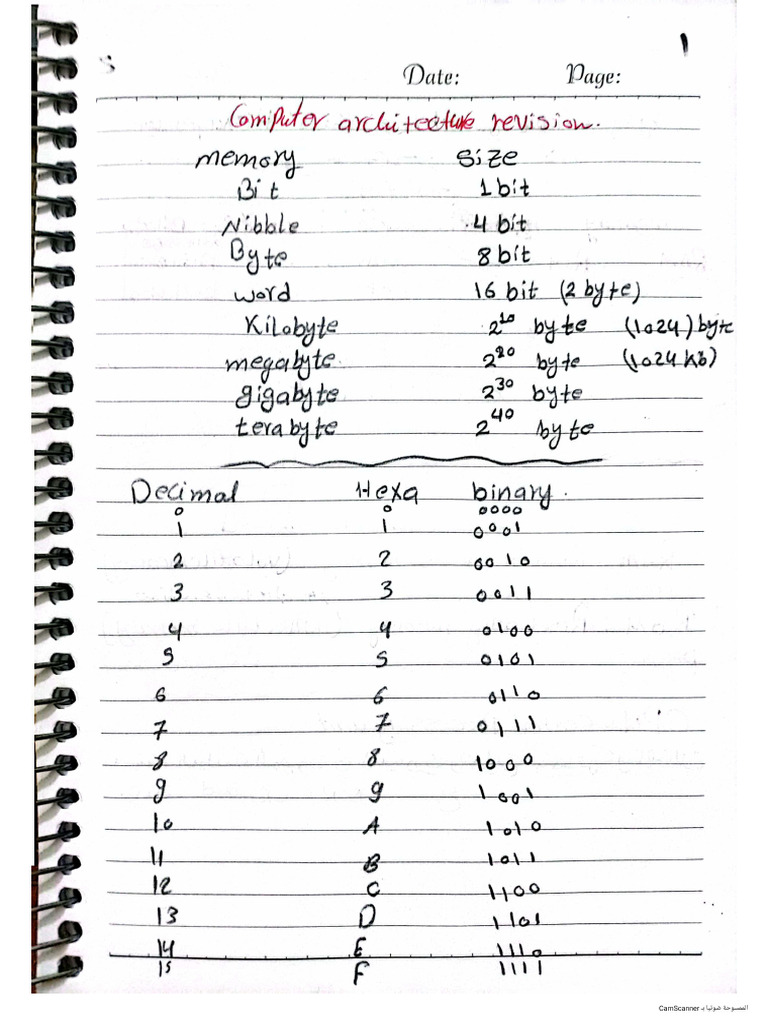 1
Date: Page:
Computer architecture revision.
memory size
Bit 1 bit
Nibble 4 bit
Byte 8 bit
word 16 bit (2 byte)
Kilobyte 2^10 byte (1024) byte
megabyte 2^20 byte (1024 kb)
gigabyte 2^30 byte
terabyte 2^40 byte
Decimal Hexa binary.
0 0 0000
1 1 0001
2 2 0010
3 3 0011
4 4 0100
5 5 0101
6 6 0110
7 7 0111
8 8 1000
9 9 1001
10 A 1010
11 B 1011
12 C 1100
13 D 1101
14 E 1110
15 F 1111
الممسوحة ضوئيا بـ CamScanner